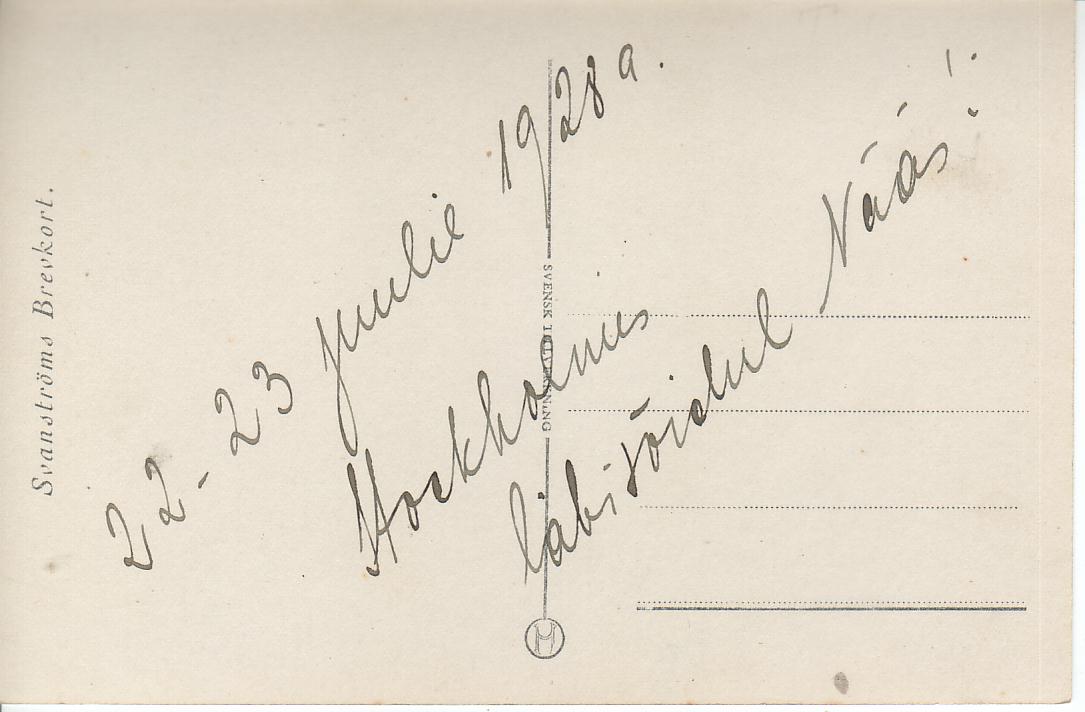 Svanströms Brevkort.
SVENSK TILLVERKNING
22-23 juulil 1928 a.
Stockholmis
läbisõidul Nääs!